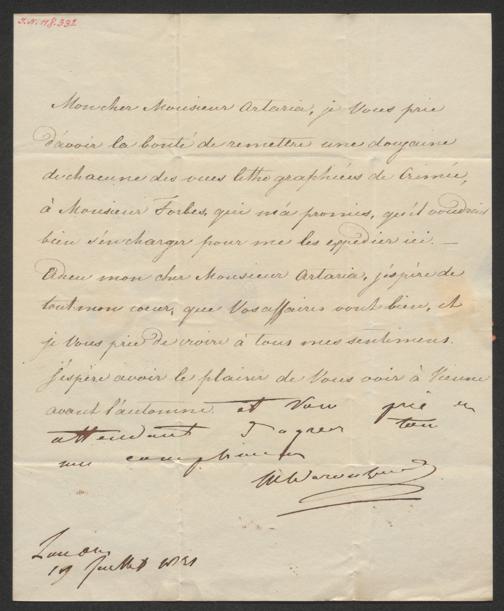 I.N. 118.332
Mon cher Monsieur Artaria, je Vous prie
d'avoir la bonté de remettre une douzaine
de chacune des vues lithographiées de Crimée,
à Monsieur Forbes, qui m'a promis, qu'il voudrais
bien s'en charger pour me les expédier ici. —
Adieu mon cher Monsieur Artaria, j'éspère de
tout mon coeur, que Vos affaires vont bien, et
je Vous prie de croire à tous mes sentimens.
J'éspère avoir le plaisir de Vous voir à Vienne
avant l'automne et Vou prie en
attendant d'agreer tou
me complimen
19 Juillet